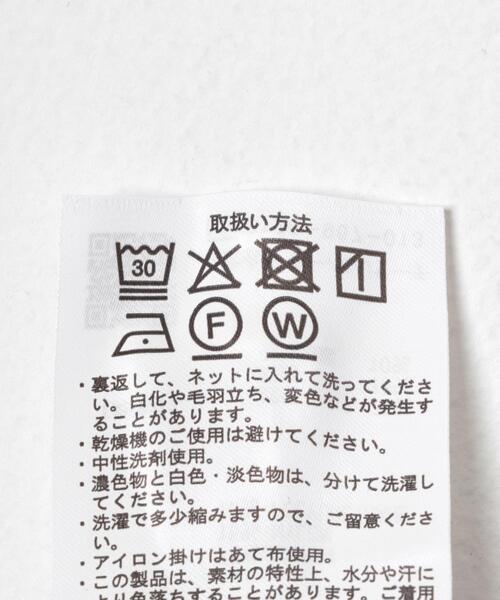 取扱い方法
30
F W
・裏返して、ネットに入れて洗ってくださ
い。白化や毛羽立ち、変色などが発生す
ることがあります。
・乾燥機のご使用は避けてください。
・中性洗剤使用。
・濃色物と白色・淡色物は、分けて洗濯し
てください。
・洗濯で多少縮みますので、ご留意くださ
い。
・アイロン掛けはあて布使用。
・この製品は、素材の特性上、水分や汗に
より色落ちすることがあります。ご着用